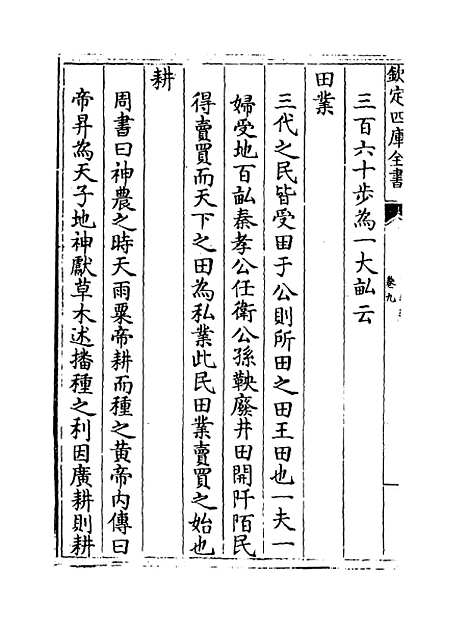 欽定四庫全書
卷九
三百六十步為一大畝云
田業
三代之民皆受田于公則所田之田王田也一夫一
婦受地百畝秦孝公任衛公孫鞅廢井田開阡陌民
得賣買而天下之田為私業此民田業賣買之始也
耕
周書曰神農之時天雨粟帝耕而種之黄帝內傳曰
帝昇為天子地神獻草木述播種之利因廣耕則耕